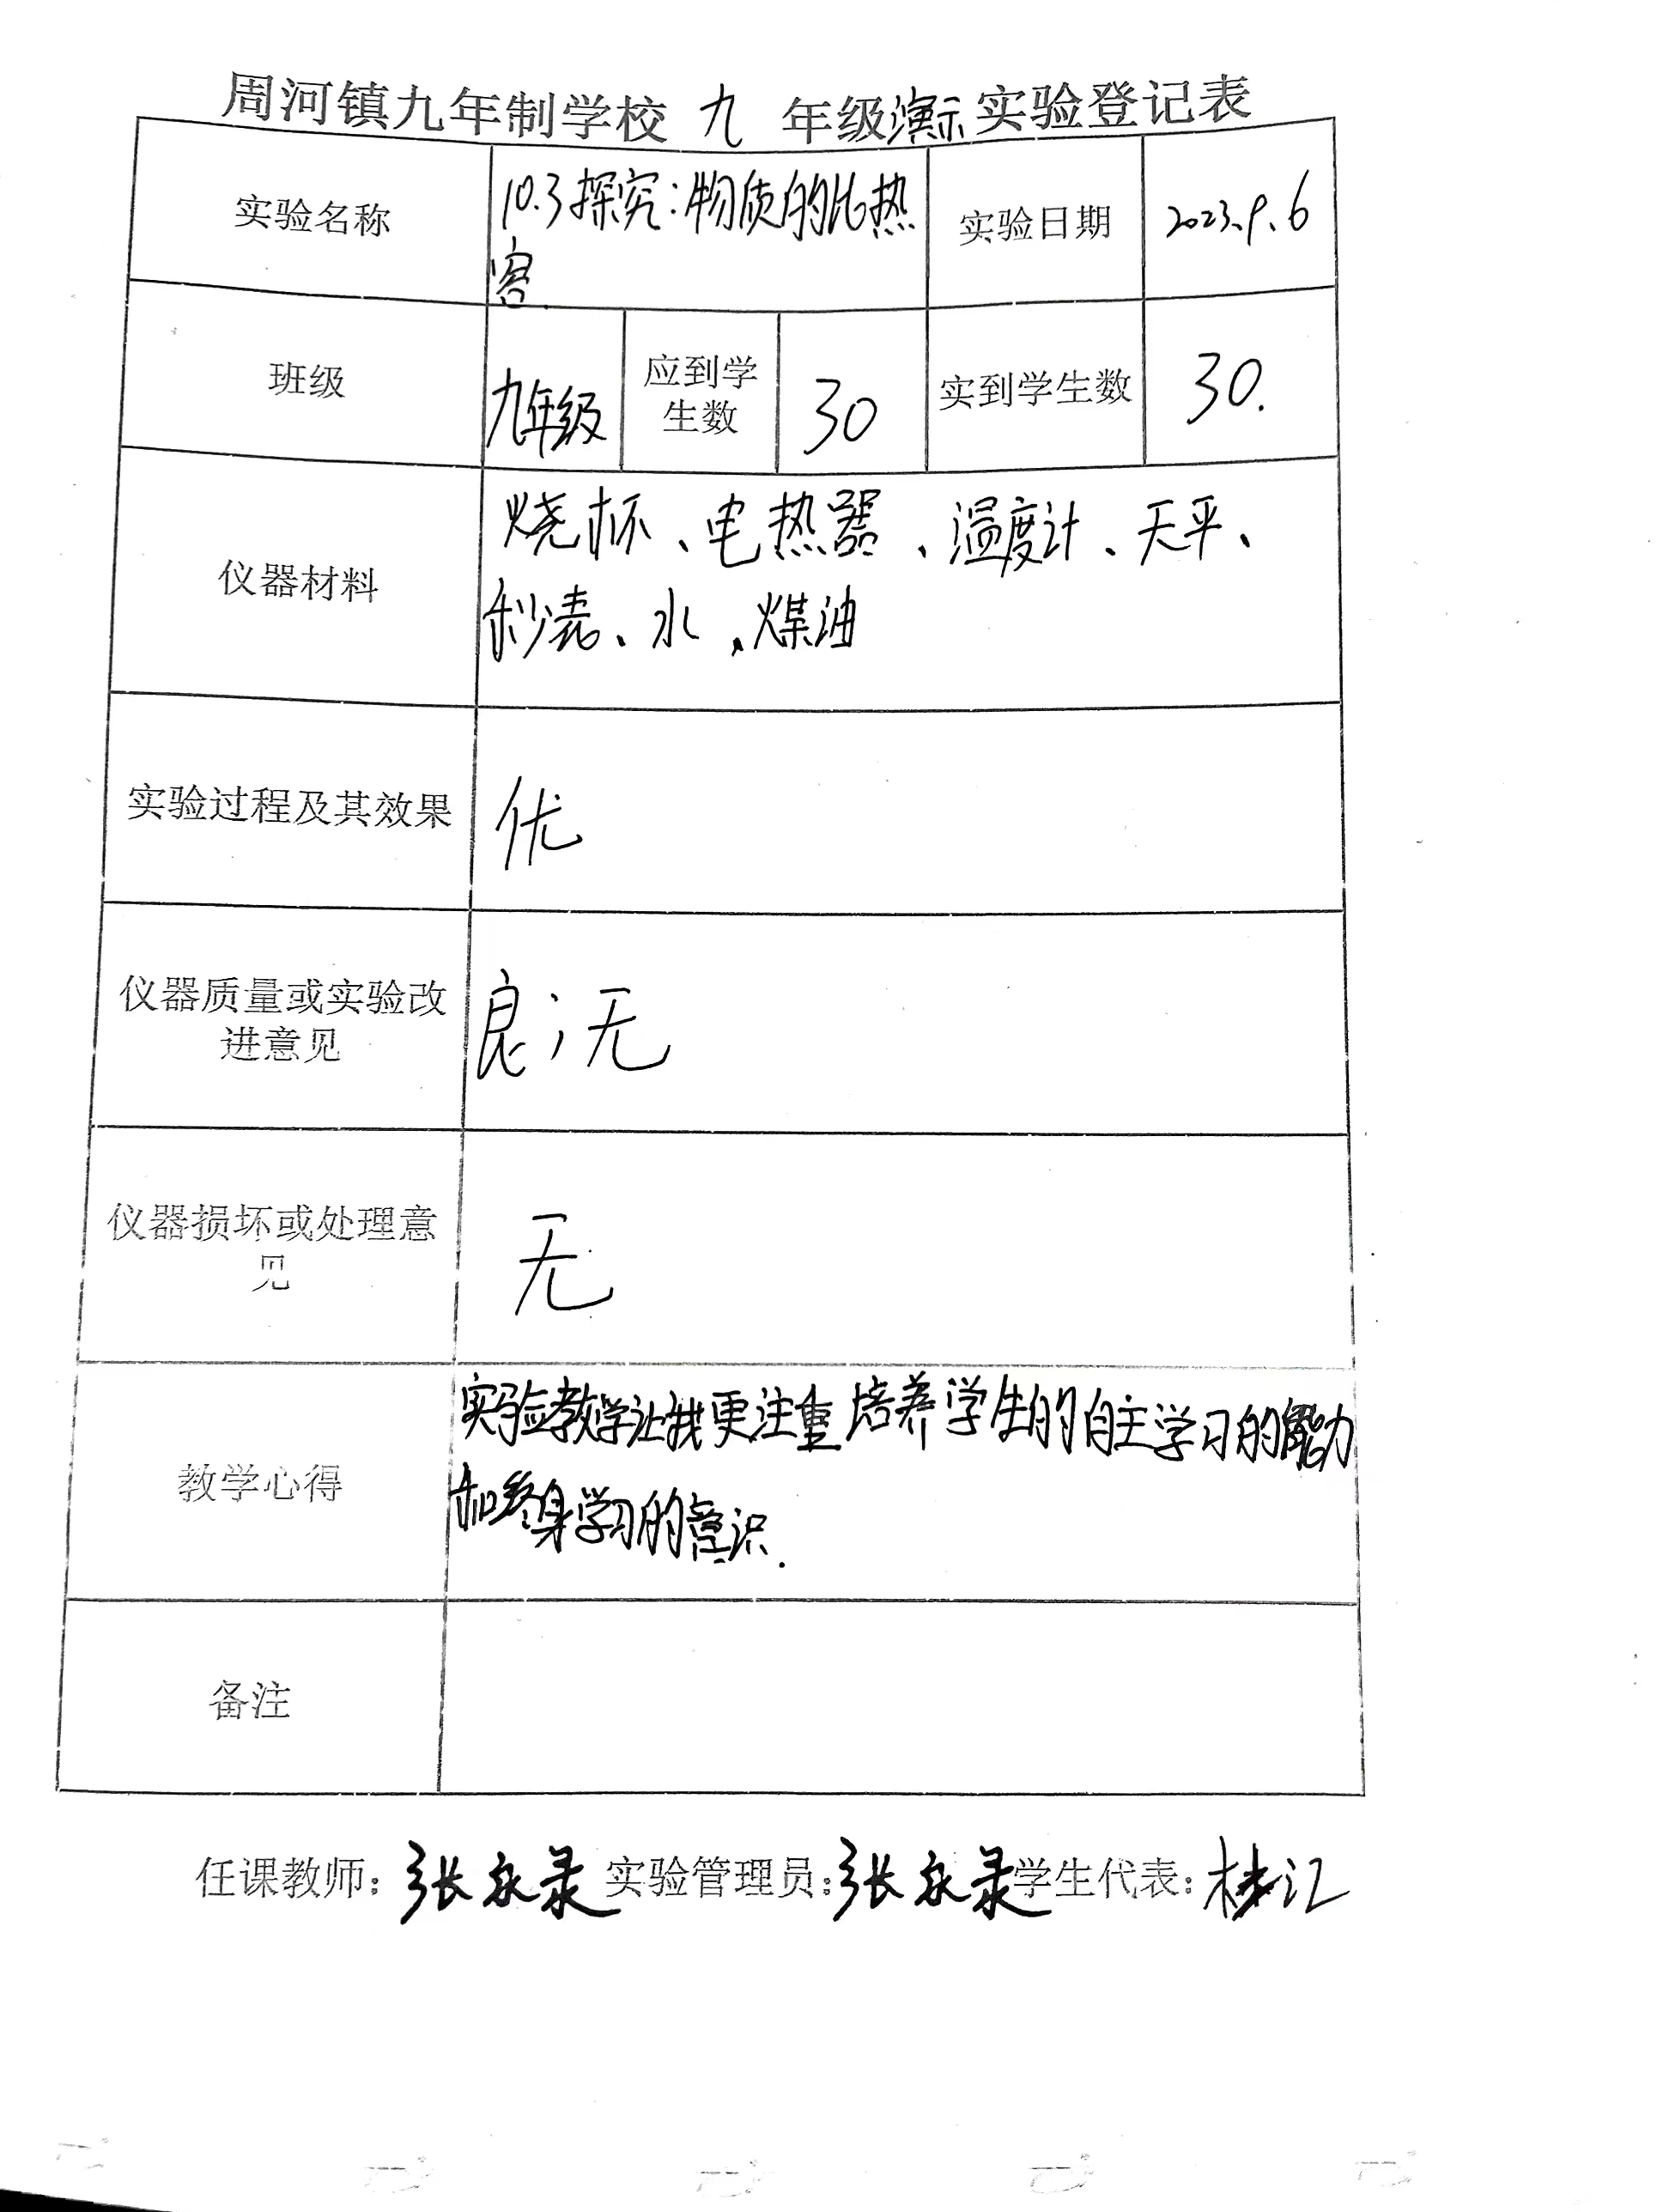 周河镇九年制学校 九 年级演示实验登记表
实验名称
10.3探究:物质的比热
容
实验日期
2023.9.6
班级
九年级
应到学
生数
30
实到学生数
30.
仪器材料
烧杯、电热器、温度计、天平、
秒表、水、煤油
实验过程及其效果
优
仪器质量或实验改
进意见
良;无
仪器损坏或处理意
见
无
教学心得
实验教学让我更注重培养学生的自主学习的能力
和终身学习的意识.
备注
任课教师:张永录 实验管理员:张永录 学生代表: